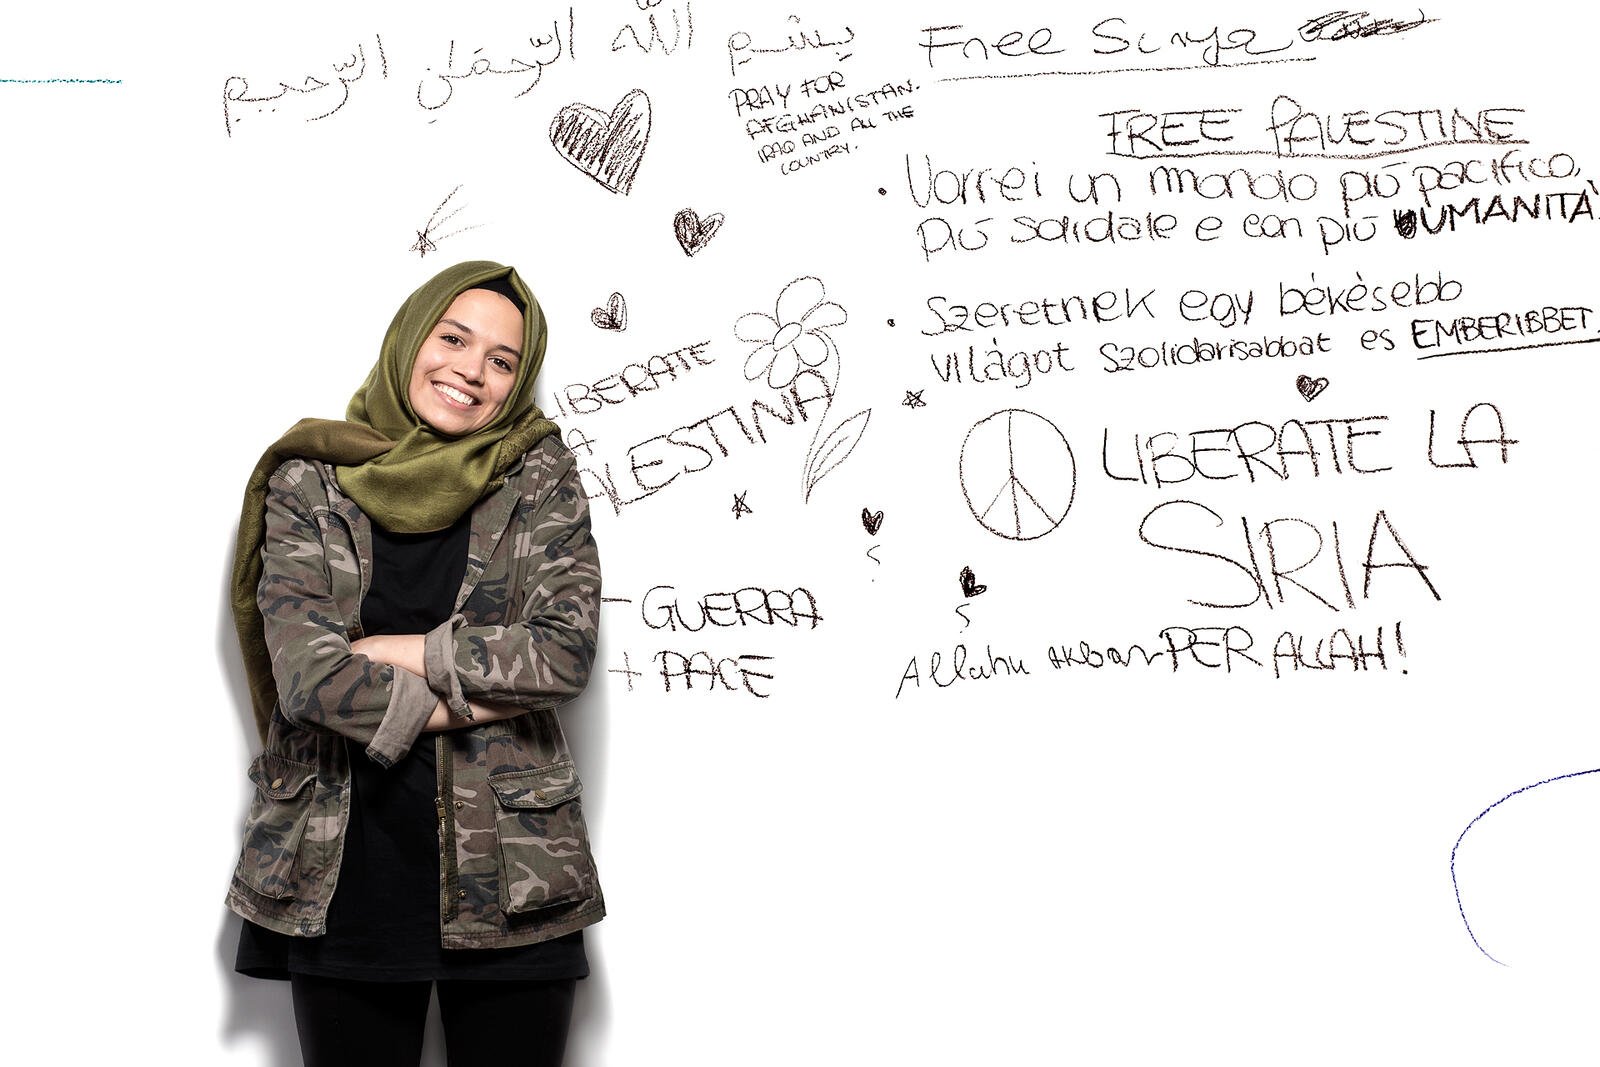 بِسْمِ اللّٰهِ الرَّحْمٰنِ الرَّحِيمِ
Free Surya
PRAY FOR
AFGHANISTAN.
IRAQ AND ALL THE
COUNTRY.
FREE PALESTINE
• Vorrei un mondo più pacifico,
più solidale e con più UMANITÀ.
• Szeretnék egy békèsebb
világot szolidárisabbat es EMBERIBBET.
LIBERATE
LA
PALESTINA
LIBERATE LA
SIRIA
- GUERRA
+ PACE
Allahu akbar PER ALLAH!